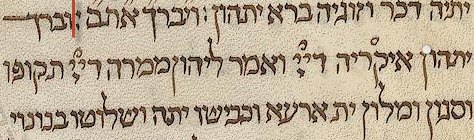 יתיה דכר וזוגיה ברא יתהון : ויברך אתם וברך
יתהון איקריה דייי ואמר ליהון ממרה דייי תקופו
וסגון ומלון ית ארעא וכבישו יתה ושלוטו בנונוי